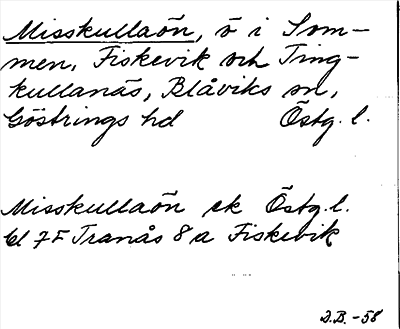 Misskullaön, ö i Som-
men, Fiskevik och Ting-
kullanäs, Blåviks sn,
Göstrings hd Östg. l.
Misskullaön ek Östg. l.
bl 7F Tranås 8a Fiskevik
D.B. -58